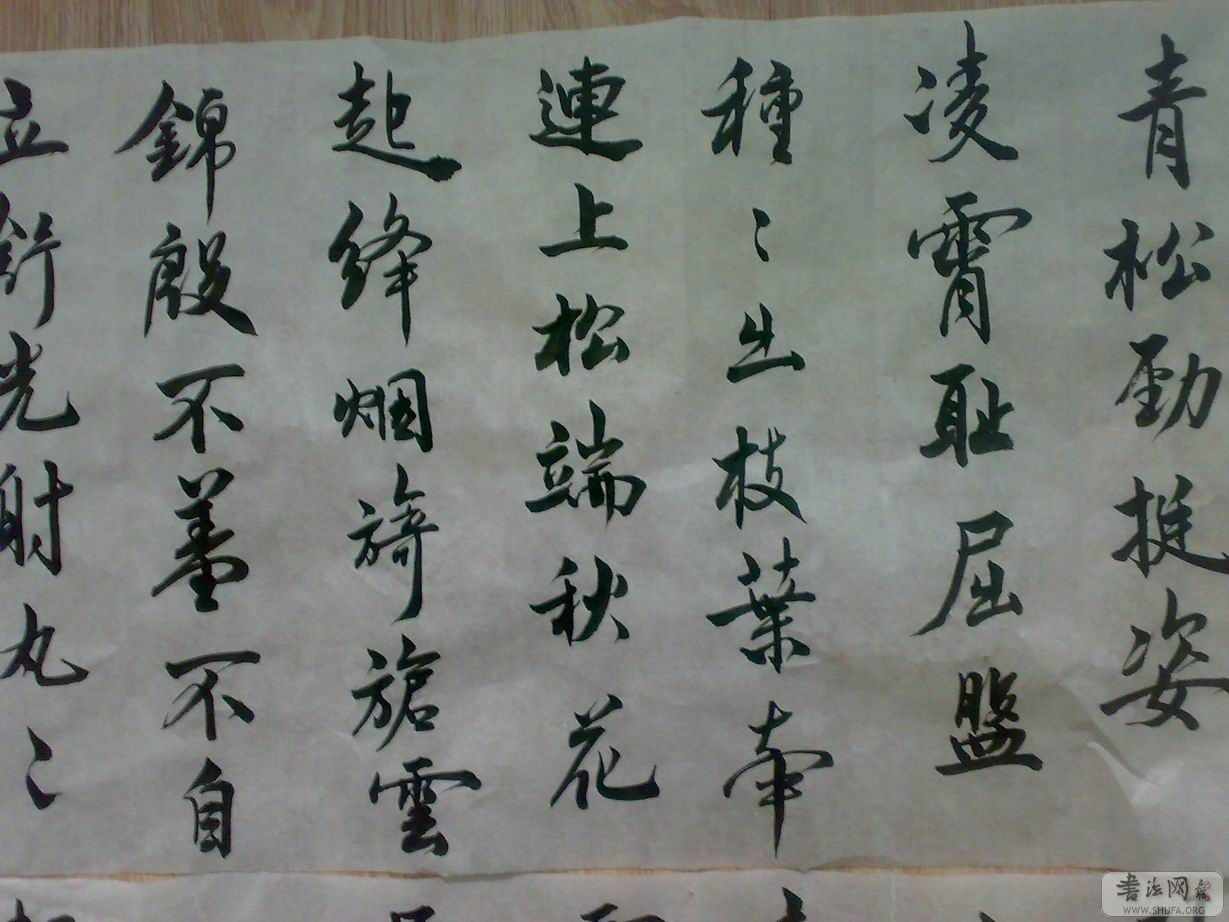 青松勁挺姿
凌霄耻屈盤
種〻出枝葉牽
連上松端秋花
起絳烟旖旎雲
錦殷不羞不自
立舒光射丸〻
書法网
WWW.SHUFA.ORG